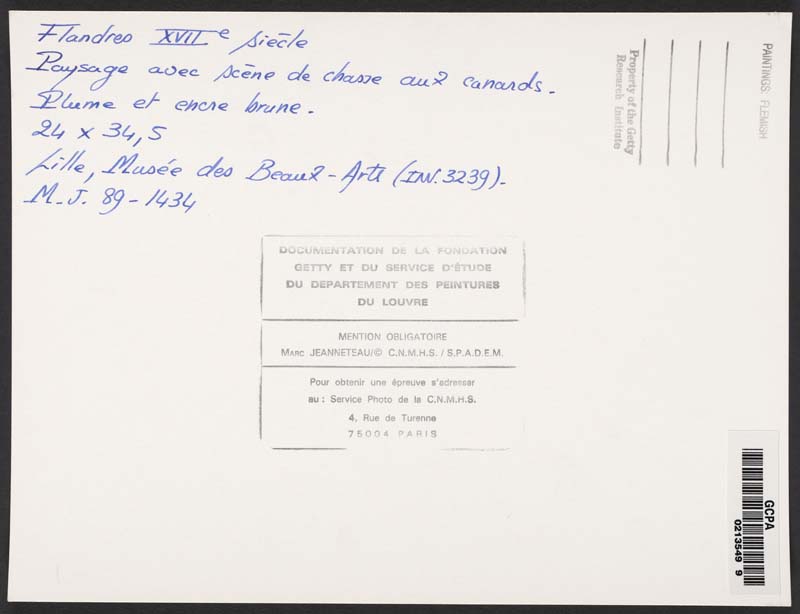 Flandres XVIIe siècle
Paysage avec scène de chasse aux canards.
Plume et encre brune.
24 x 34,5
Lille, Musée des Beaux-Arts (INV. 3239).
M.J. 89-1434
Property of the Getty
Research Institute
PAINTINGS: FLEMISH
DOCUMENTATION DE LA FONDATION
GETTY ET DU SERVICE D'ÉTUDE
DU DEPARTEMENT DES PEINTURES
DU LOUVRE
MENTION OBLIGATOIRE
MARC JEANNETEAU/© C.N.M.H.S. / S.P.A.D.E.M.
Pour obtenir une épreuve s'adresser
au : Service Photo de la C.N.M.H.S.
4, Rue de Turenne
75004 PARIS
GCPA
0213549 9